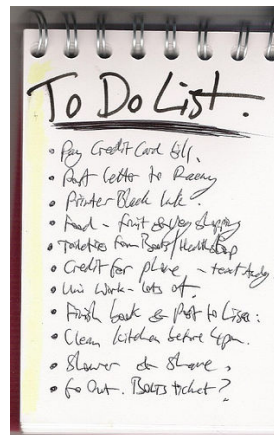 To Do List.
• Pay Credit Card bills.
• Post letter to
• Printer Black Ink.
• Food - fruit & veg shopping
• Toiletries from Boots/Health Shop
• Credit for phone - text Andy
• Uni Work - lots of.
• Finish book & Post to Lisa:
• Clean kitchen before 4pm.
• Shower & Shave.
• Go Out. ticket?